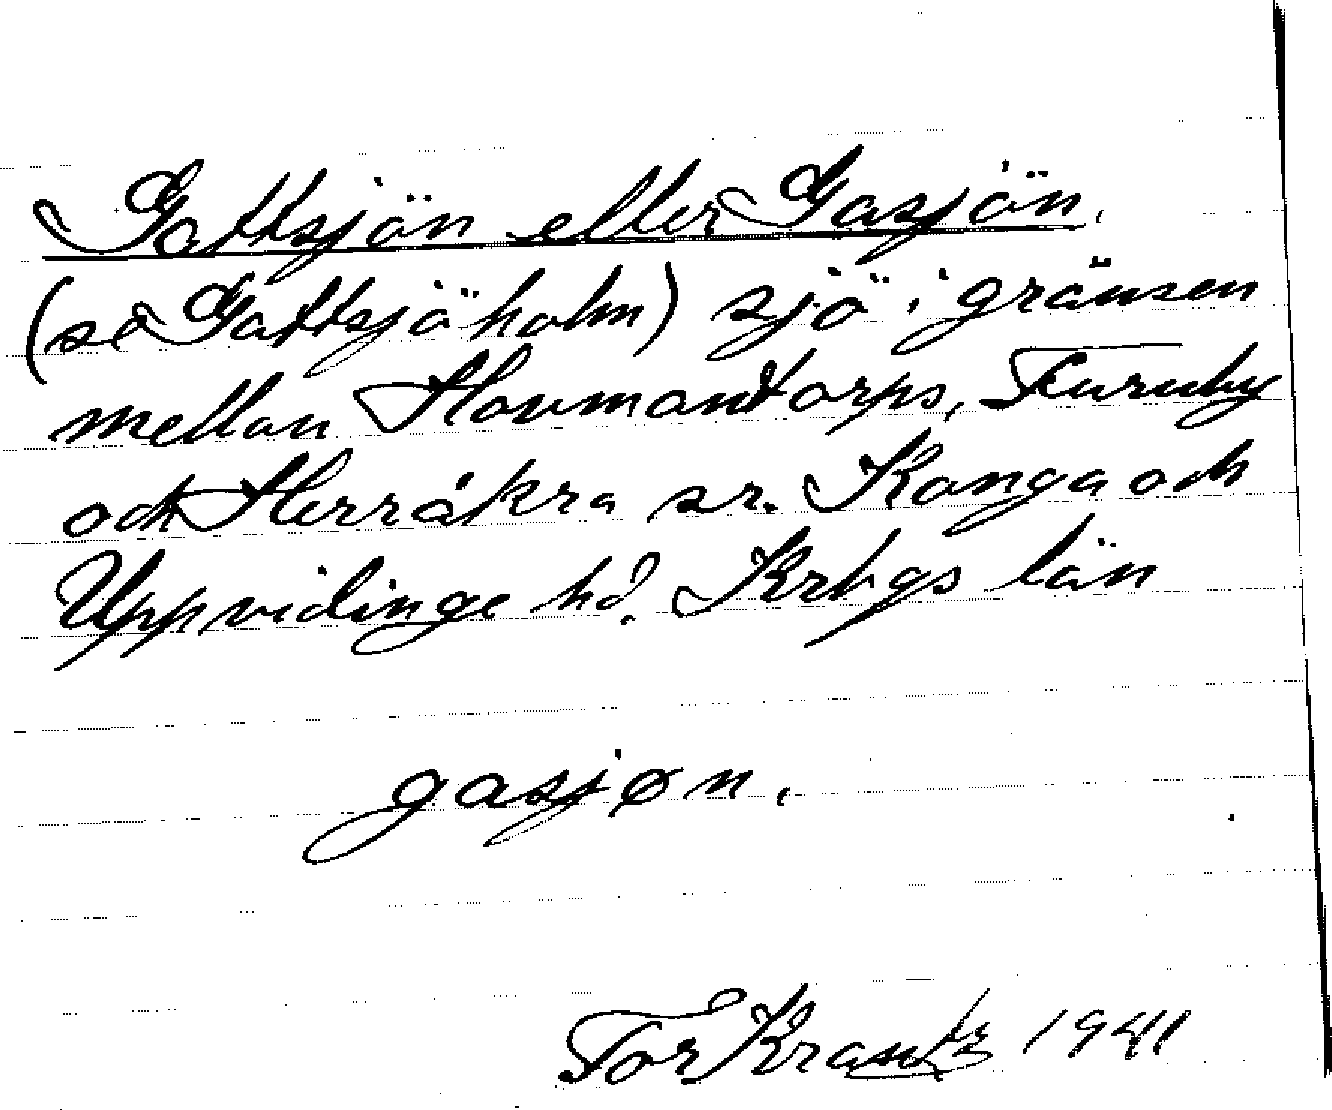 Gattsjön eller Gasjön.
(se Gattsjöholm) sjö i gränsen
mellan Hovmantorps, Furuby
och Herråkra sr. Konga och
Uppvidinge hd. Krbgs län
gasjøn.
Tor Krantz 1941